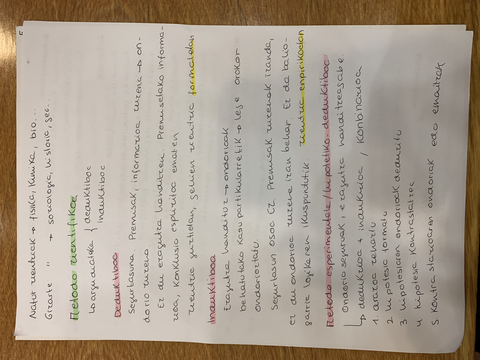 Natur zientziak → fisika, kimika, bio...
Gizarte " → soziologia, historia, geo.
Metodo zientifikoa
Lo argumentatiboak { deduktiboa
induktiboa
Deduktiboa
Segurtasuna Premisak, informazioa zuzena → on-
dorio zuzena
Ez du ezagutza handitzen Premisetako informa-
zioa, konklusio espliziloa ematen
zientzia guztietan, gehien zientzia formaletan
Induktiboa
Ezagutza handitu → ondorioak
behatutako kasu partikularretik → lege orokor
ondorioztatu
Segurtasun osoa Ez Premisak zuzenak izanda,
ez du ondorioa zuzena izan behar Ez da balio-
garria logikaren ikuspuntutik zientzia enpirikoetan
Metodo esperimentala / hipotetiko-deduktiboa
Ondorio seguruak, ezagutza handitzeagabe.
↳ dedukzioa + indukzioa / konbinazioa
1 arazoa zehaztu
2 hipotesia formatu
3 hipotesiaren ondorioak deduzitu
4 hipotesia kontrastatzea
5 kontrastazioaren ondorioak edo emaitzak